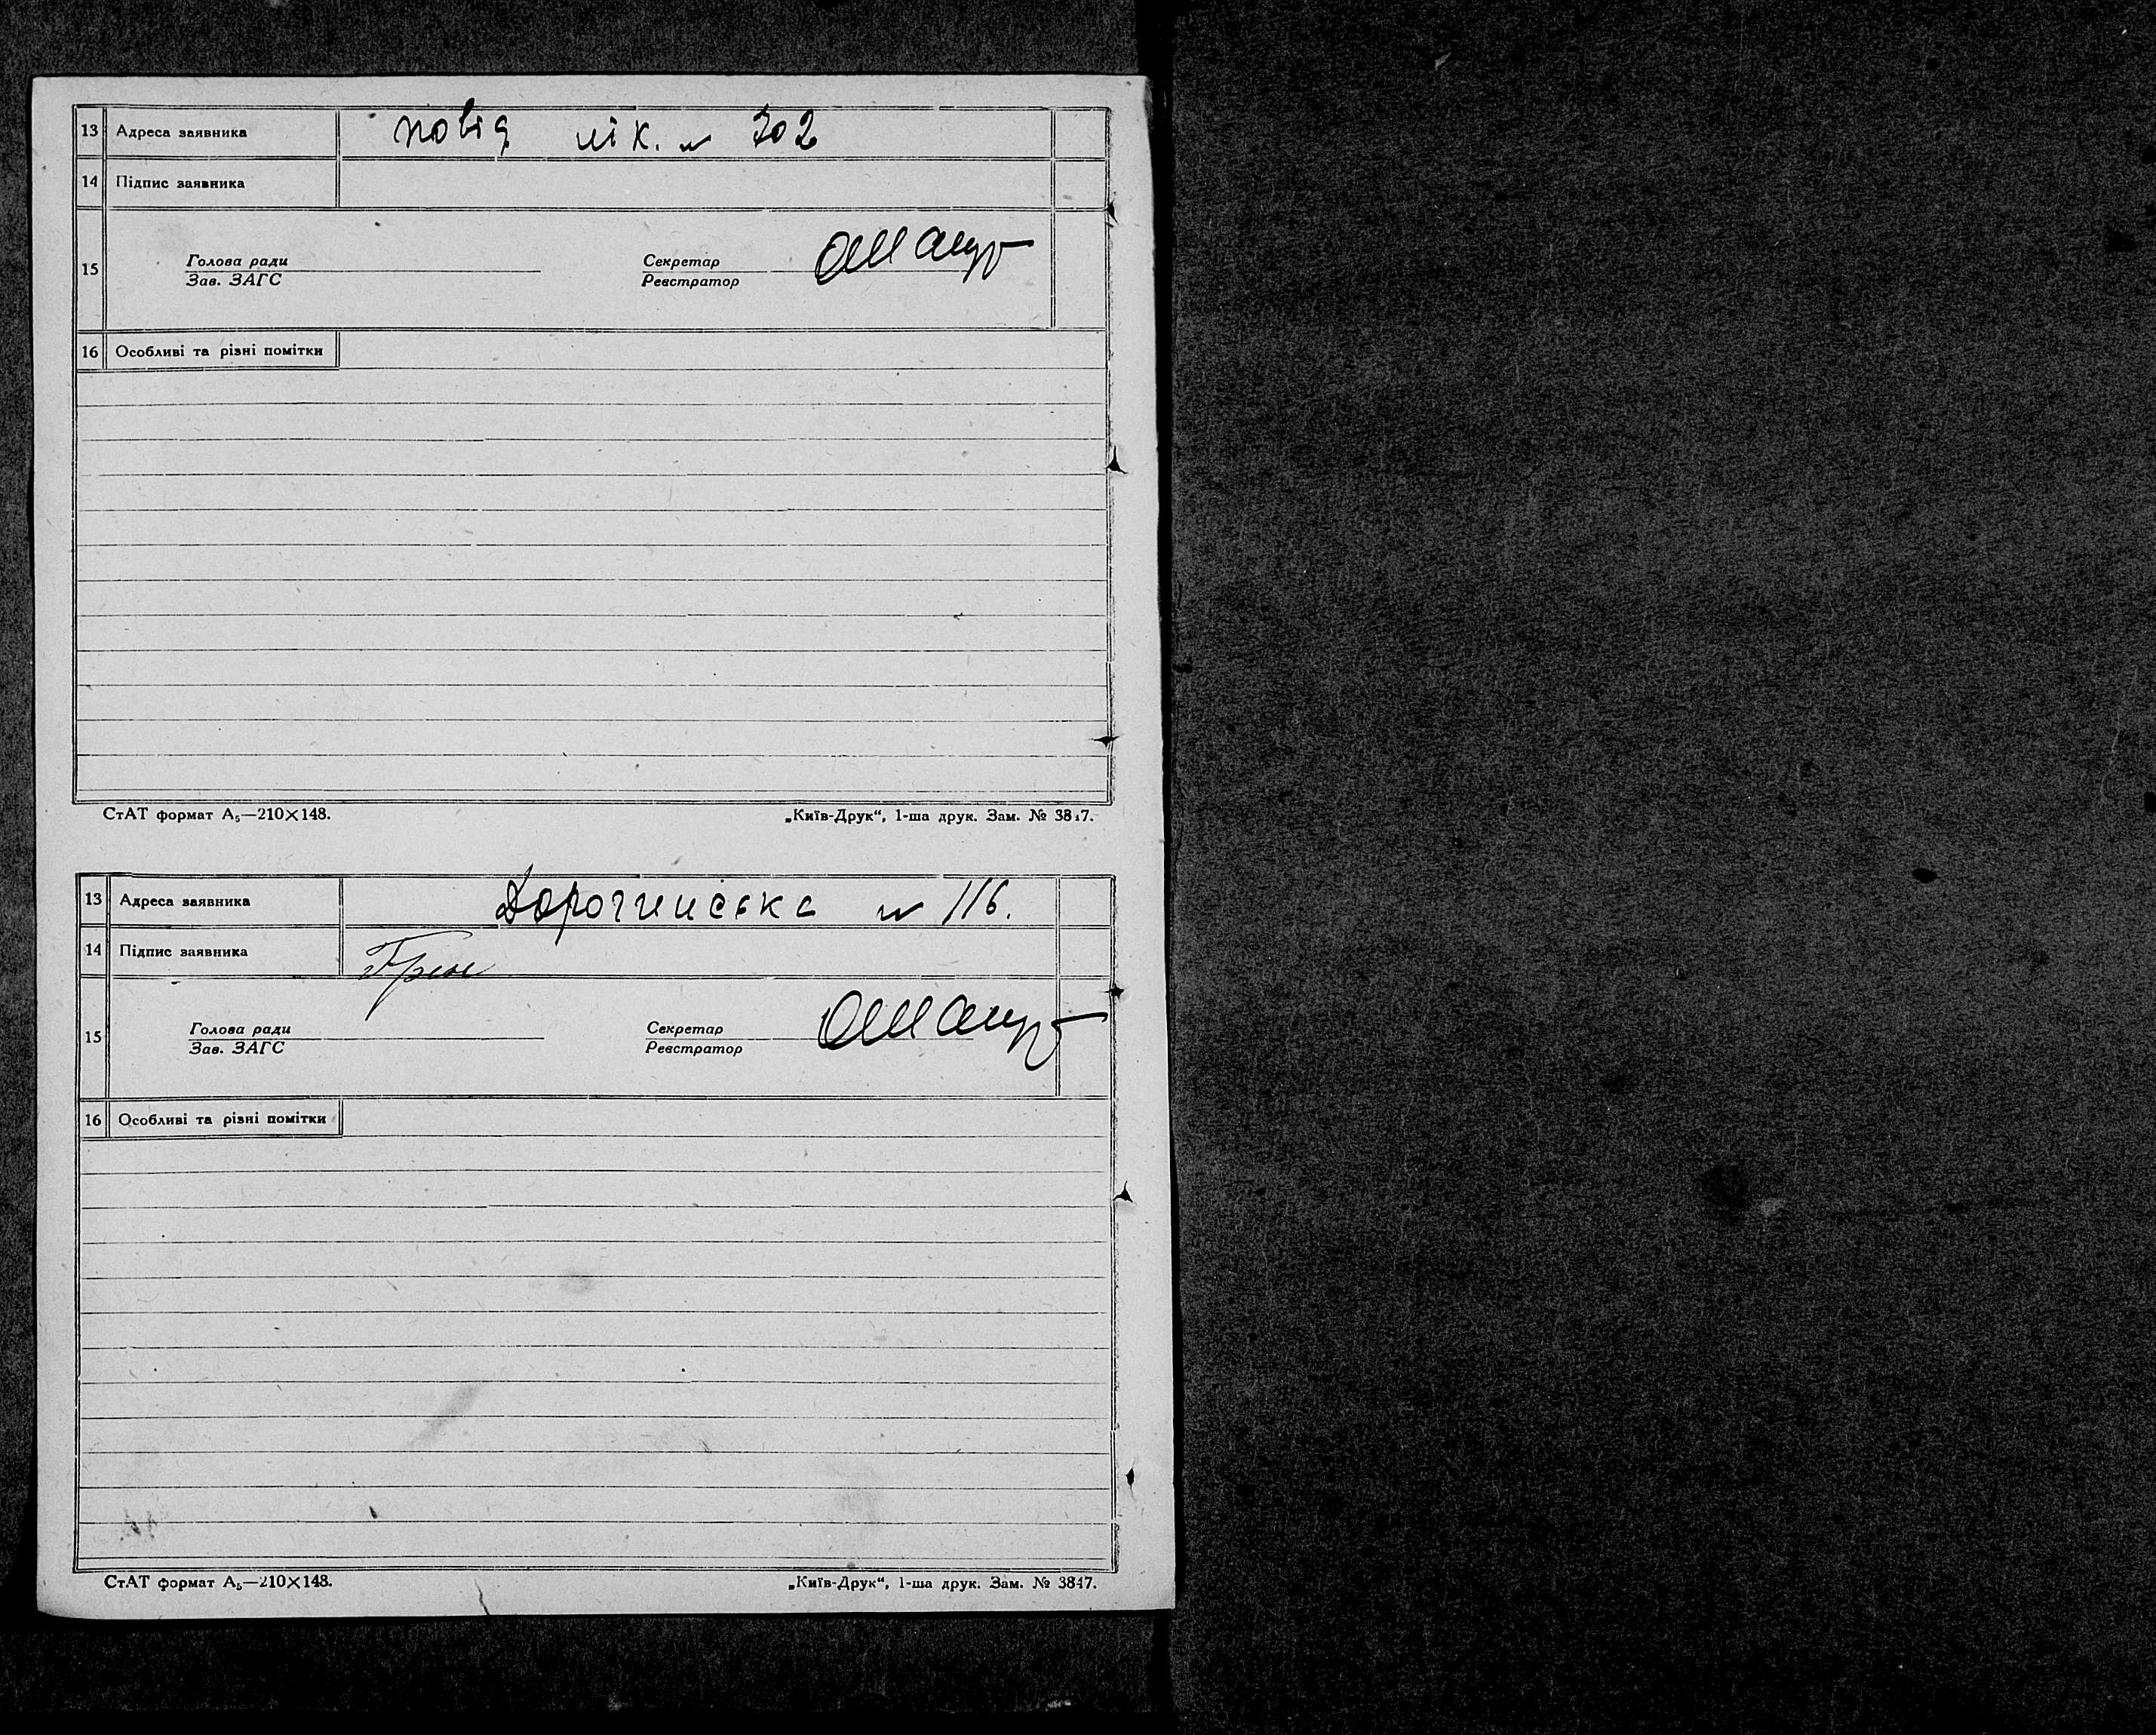 13 Адреса заявника повід лік. № 302
14 Підпис заявника
15 Голова ради Секретар
Зав. ЗАГС Реєстратор
16 Особливі та різні помітки
СтАТ формат А₅—210×148. „Київ-Друк“, 1-ша друк. Зам. № 3847.
13 Адреса заявника Дорогинська № 116.
14 Підпис заявника
15 Голова ради Секретар
Зав. ЗАГС Реєстратор
16 Особливі та різні помітки
СтАТ формат А₅—210×148. „Київ-Друк“, 1-ша друк. Зам. № 3847.